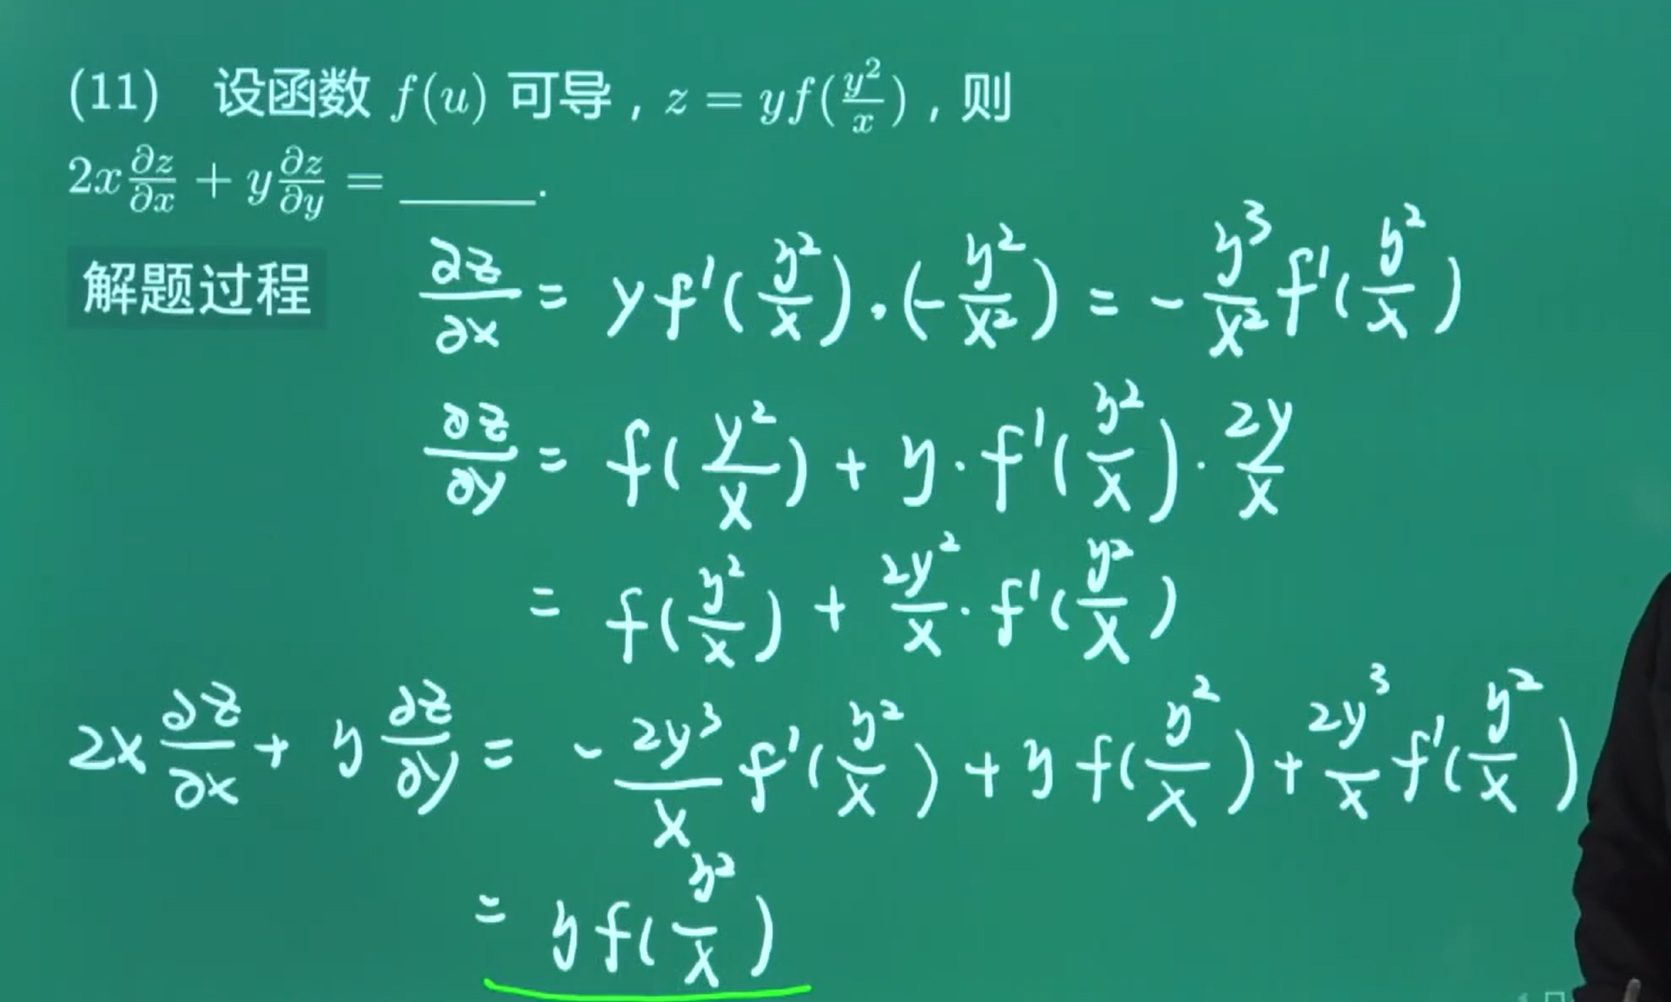 (11) 设函数 f(u) 可导，z = yf(y²/x)，则
2x ∂z/∂x + y ∂z/∂y = ______.
解题过程
∂z/∂x = y f'(y²/x)·(-y²/x²) = -y³/x² f'(y²/x)
∂z/∂y = f(y²/x) + y·f'(y²/x)·2y/x
= f(y²/x) + 2y²/x·f'(y²/x)
2x ∂z/∂x + y ∂z/∂y = -2y³/x f'(y²/x) + y f(y²/x) + 2y³/x f'(y²/x)
= y f(y²/x)